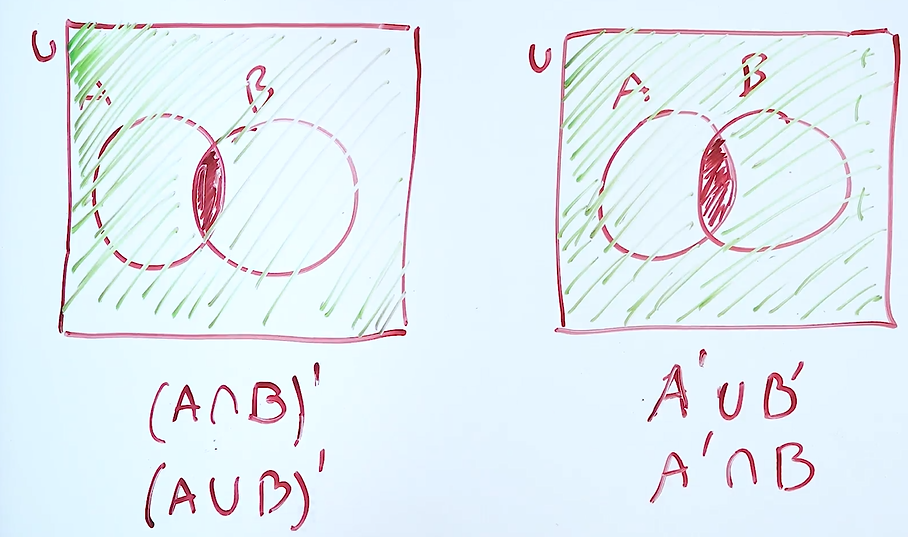 U
A B
(A∩B)'
(A∪B)'
U
A B
A'∪B'
A'∩B